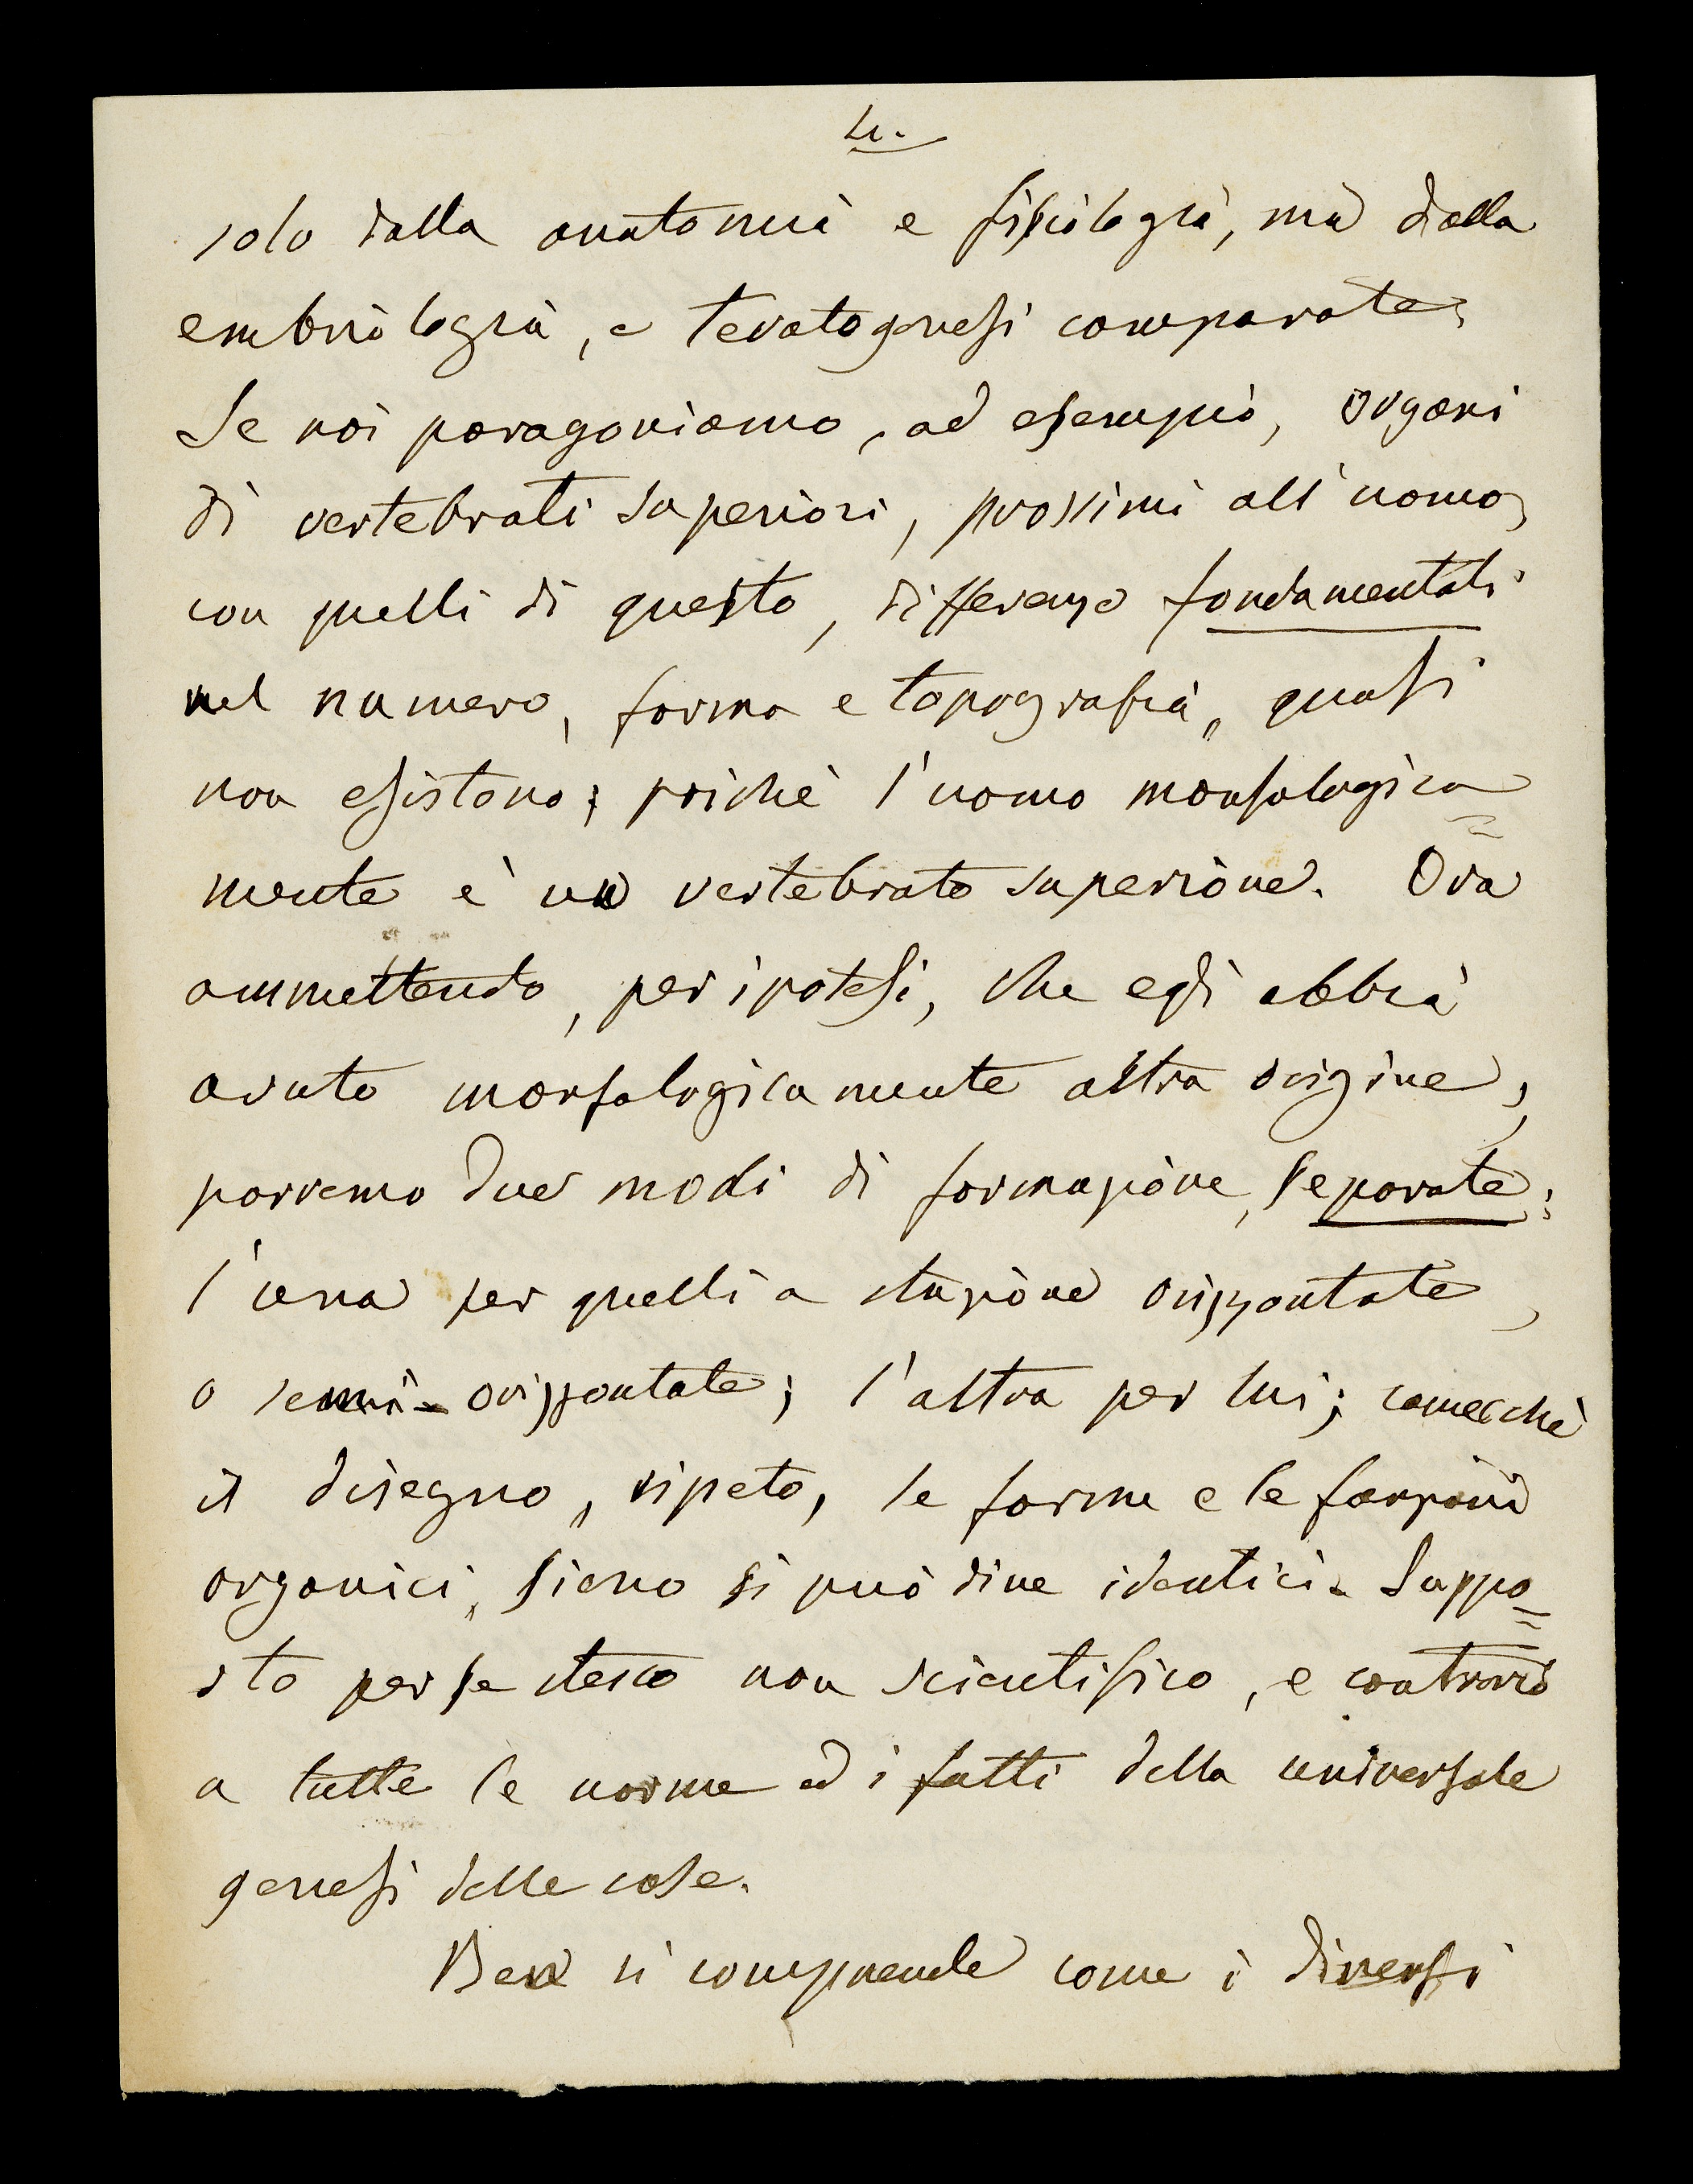 4.
solo dalla anatomia e fisiologia, ma dalla
embriologia, e teratogenesi comparate.
Se noi paragoniamo, ad esempio, organi
di vertebrati superiori, prossimi all'uomo,
con quelli di questo, differenze fondamentali
nel numero, forma e topografia, quasi
non esistono; poichè l'uomo morfologica=
mente è un vertebrato superiore. Ora
ammettendo, per ipotesi, che egli abbia
avuto morfologicamente altra origine,
porremo due modi di formazione, separate;
l'una per quelli a stazione orizzontale,
o semi-orizzontale; l'altra per lui; comecchè
il disegno, ripeto, le forme e le funzioni
organici, sieno si può dire identici. Suppo=
sto per se stesso non scientifico, e contrario
a tutte le norme ed i fatti della universale
genesi delle cose.
Ben si comprende come i diversi